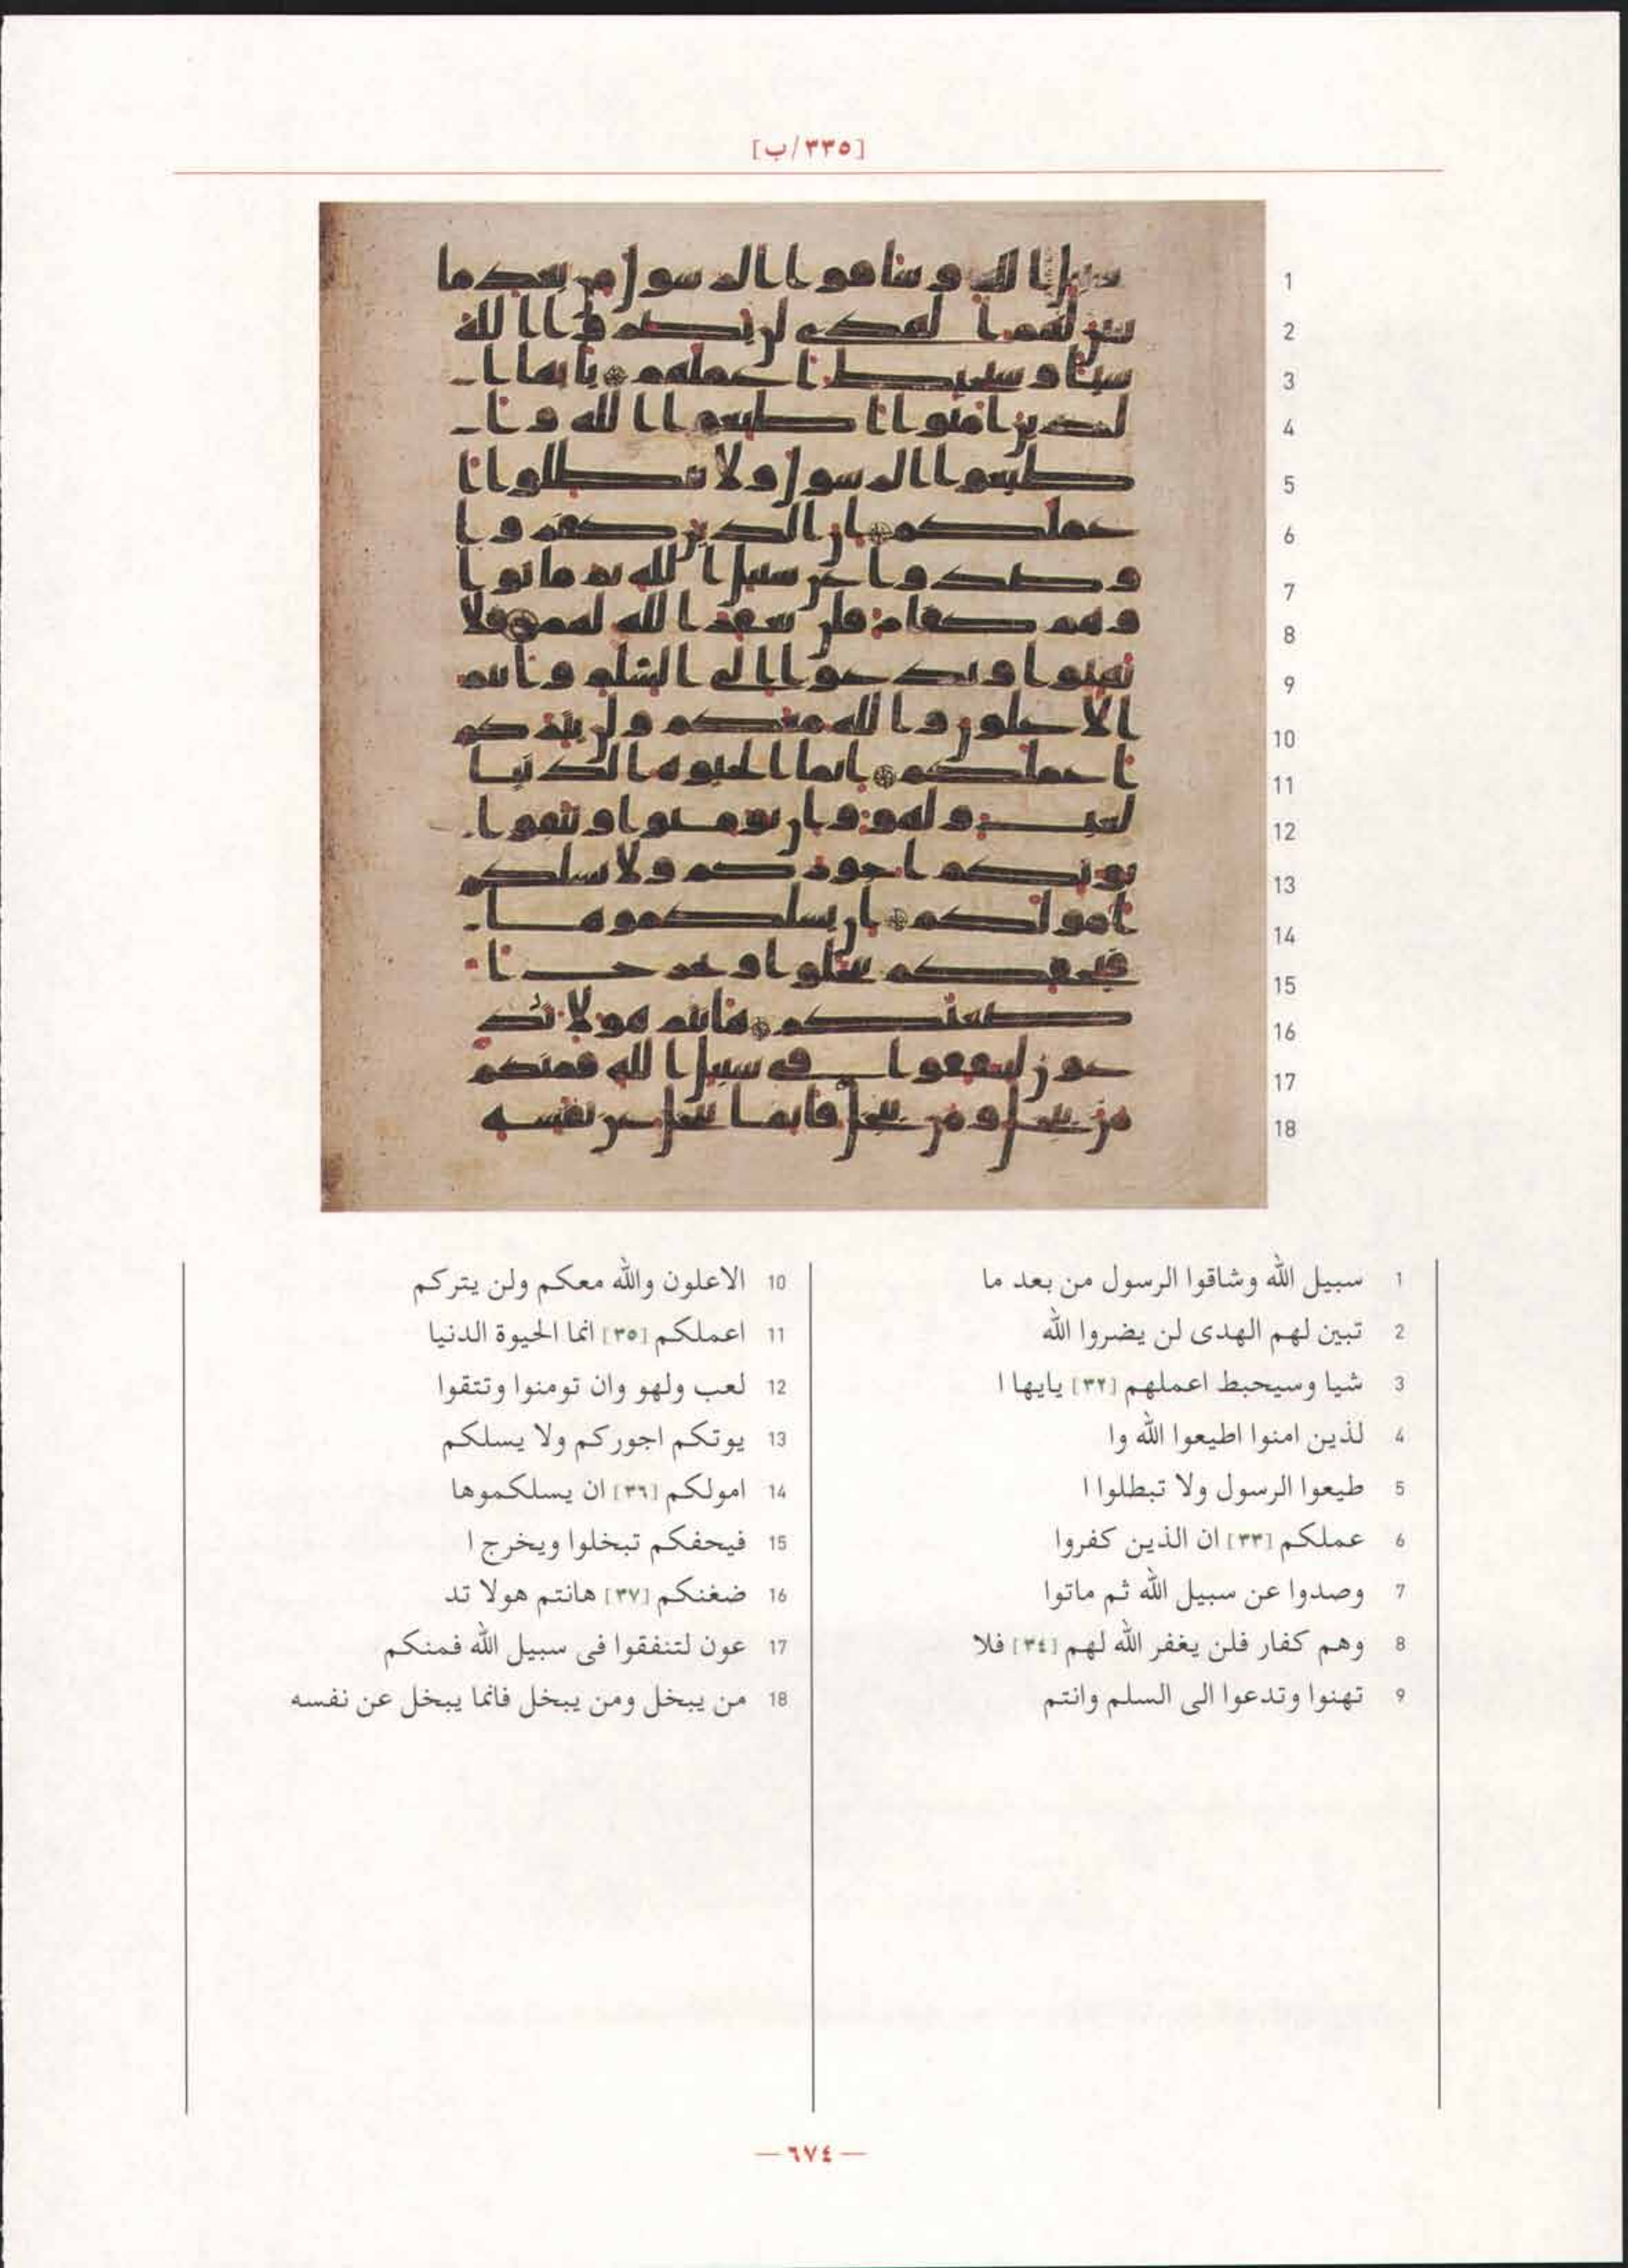 [٣٣٥/ب]
1 سبيل الله وشاقوا الرسول من بعد ما
2 تبين لهم الهدى لن يضروا الله
3 شيا وسيحبط اعملهم [٣٢] يايها ا
4 لذين امنوا اطيعوا الله وا
5 طيعوا الرسول ولا تبطلوا ا
6 عملكم [٣٣] ان الذين كفروا
7 وصدوا عن سبيل الله ثم ماتوا
8 وهم كفار فلن يغفر الله لهم [٣٤] فلا
9 تهنوا وتدعوا الى السلم وانتم
10 الاعلون والله معكم ولن يتركم
11 اعملكم [٣٥] انما الحيوة الدنيا
12 لعب ولهو وان تومنوا وتتقوا
13 يوتكم اجوركم ولا يسلكم
14 امولكم [٣٦] ان يسلكموها
15 فيحفكم تبخلوا ويخرج ا
16 ضغنكم [٣٧] هانتم هولا تد
17 عون لتنفقوا فى سبيل الله فمنكم
18 من يبخل ومن يبخل فانما يبخل عن نفسه
— ٦٧٤ —